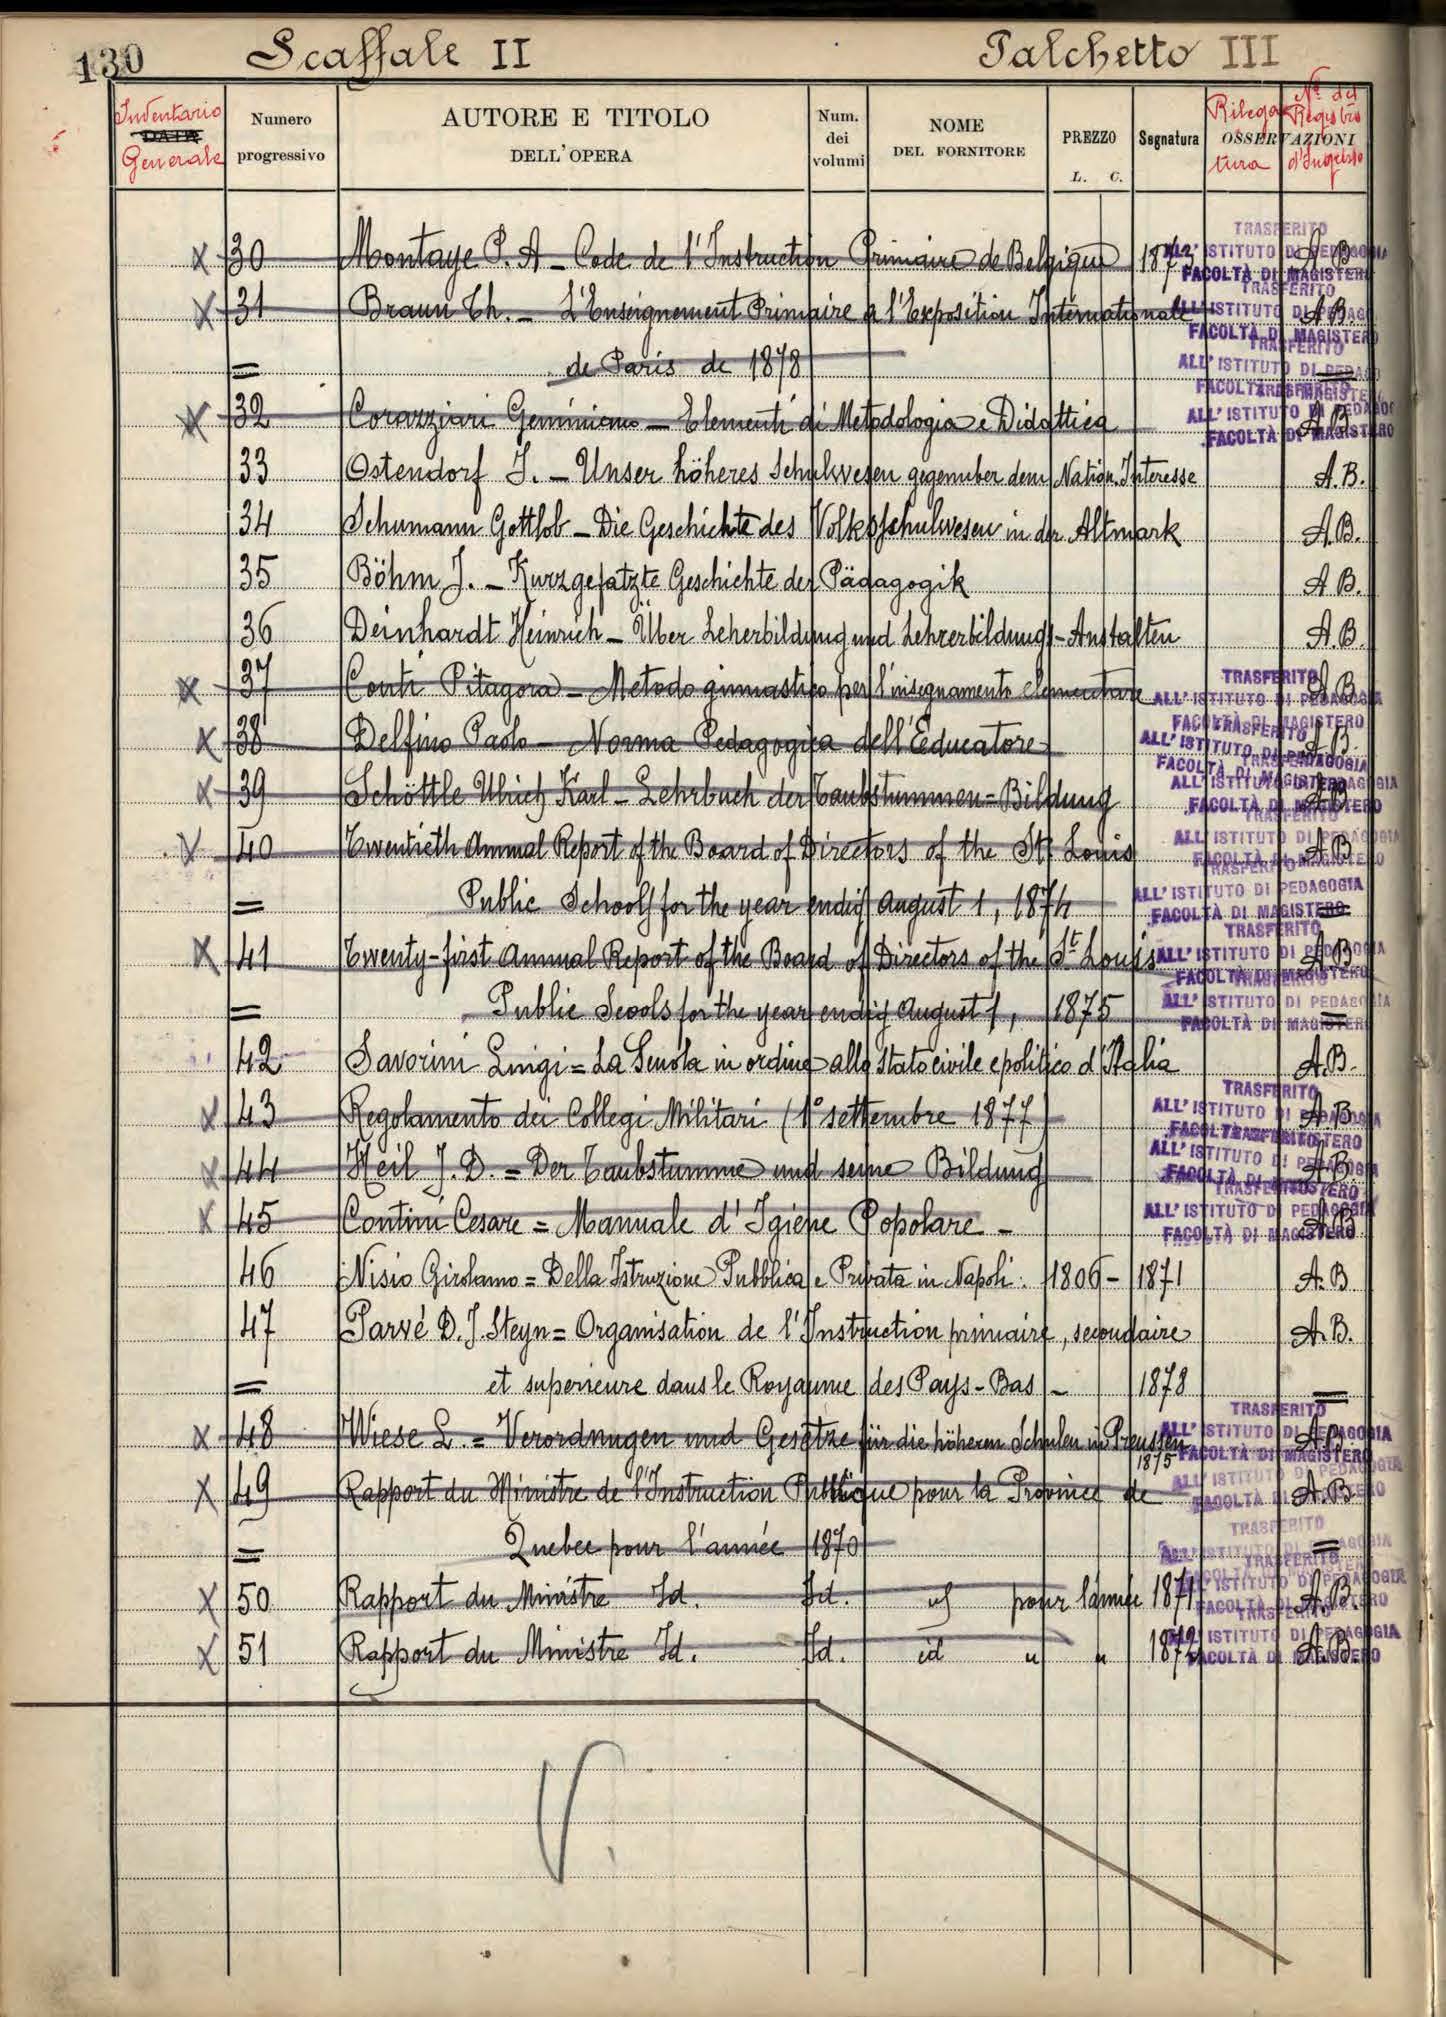 130 Scaffale II Palchetto III
Inventario DATA Generale
Numero progressivo
AUTORE E TITOLO DELL'OPERA
Num. dei volumi
NOME DEL FORNITORE
PREZZO L. C.
Segnatura
OSSERVAZIONI
Rilegatura
No del Registro d'Ingresso
X 30 Montaye P. A - Code de l'Instruction Primaire de Belgique 187 TRASFERITO ALL'ISTITUTO DI PEDAGOGIA FACOLTÀ DI MAGISTERO A B
X 31 Braun Th. - L'Enseignement Primaire a l'Exposition Internationale TRASFERITO ALL'ISTITUTO DI PEDAGO FACOLTÀ DI MAGISTERO A B.
= de Paris de 1878 =
X 32 Corazziari Geminiano - Elementi di Metodologia e Didattica TRASFERITO ALL'ISTITUTO DI PEDAGOG FACOLTÀ DI MAGISTERO A B
33 Ostendorf J. - Unser höheres Schulwesen gegenuber dem Nation. Interesse A.B.
34 Schumann Gottlob - Die Geschichte des Volksschulwesen in der Altmark A.B.
35 Böhm J. - Kurzgefatzte Geschichte der Pädagogik A B.
36 Deinhardt Heinrich - Über Leherbildung und Lehrerbildungs-Anstalten A.B.
X 37 Conti Pitagora - Metodo ginnastico per l'insegnamento elementare TRASFERITO ALL'ISTITUTO DI PEDAGOGIA FACOLTÀ DI MAGISTERO A B
X 38 Delfino Paolo - Norma Pedagogica dell'Educatore TRASFERITO ALL'ISTITUTO DI PEDAGOGIA FACOLTÀ DI MAGISTERO A B.
X 39 Schöttle Ulrich Karl - Lehrbuch der Taubstummen = Bildung TRASFERITO ALL'ISTITUTO DI PEDAGOGIA FACOLTÀ DI MAGISTERO A B
V 40 Twentieth Annual Report of the Board of Directors of the St. Louis TRASFERITO ALL'ISTITUTO DI PEDAGOGIA FACOLTÀ DI MAGISTERO A B
= Public Schools for the year endig August 1, 1874 TRASFERITO ALL'ISTITUTO DI PEDAGOGIA FACOLTÀ DI MAGISTERO =
X 41 Twenty-first Annual Report of the Board of Directors of the St. Louis TRASFERITO ALL'ISTITUTO DI PEDAGOGIA FACOLTÀ DI MAGISTERO A B
= Public Scools for the year endig August 1, 1875 TRASFERITO ALL'ISTITUTO DI PEDAGOGIA FACOLTÀ DI MAGISTERO =
42 Savorini Luigi = La Scuola in ordine allo stato civile e politico d'Italia A.B.
X 43 Regolamento dei Collegi Militari (1° settembre 1877) TRASFERITO ALL'ISTITUTO DI PEDAGOGIA FACOLTÀ DI MAGISTERO A B
X 44 Heil J. D. = Der Taubstumme und seine Bildung TRASFERITO ALL'ISTITUTO DI PEDAGOGIA FACOLTÀ DI MAGISTERO A B.
X 45 Contini Cesare = Manuale d'Igiene Popolare - TRASFERITO ALL'ISTITUTO DI PEDAGOGIA FACOLTÀ DI MAGISTERO A B
46 Nisio Girolamo = Della Istruzione Pubblica e Privata in Napoli. 1806 - 1871 A. B
47 Parvé D. J. Steyn = Organisation de l'Instruction primaire, secondaire A. B.
= et superieure dans le Royaume des Pays-Bas - 1878 =
X 48 Wiese L. = Verordnugen und Gesetze für die höheren Schulen in Preussen 1875 TRASFERITO ALL'ISTITUTO DI PEDAGOGIA FACOLTÀ DI MAGISTERO A.B.
X 49 Rapport du Ministre de l'Instruction Publique pour la Province de ALL'ISTITUTO DI PEDAGOGIA FACOLTÀ DI MAGISTERO A. B
= Quebec pour l'année 1870 TRASFERITO =
X 50 Rapport du Ministre Id. Id. pour l'année 1871 TRASFERITO ALL'ISTITUTO DI PEDAGOGIA FACOLTÀ DI MAGISTERO A. B.
X 51 Rapport du Ministre Id. Id. id " " 1872 TRASFERITO ALL'ISTITUTO DI PEDAGOGIA FACOLTÀ DI MAGISTERO A. B.
V.